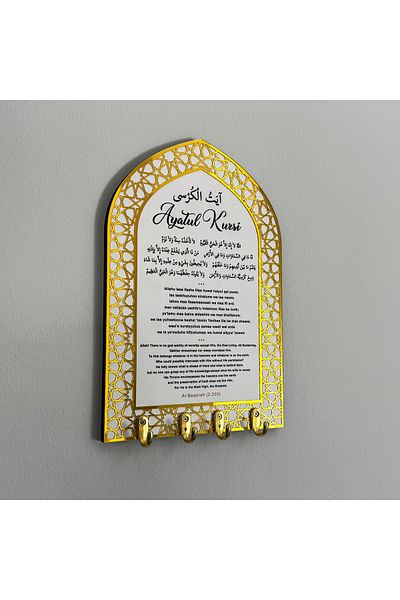 آيَتُ الْكُرْسِى
Ayatul Kursi
اللهُ لَا إِلَهَ إِلَّا هُوَ الْحَيُّ الْقَيُّومُ لَا تَأْخُذُهُ سِنَةٌ وَلَا نَوْمٌ
لَهُ مَا فِي السَّمَاوَاتِ وَمَا فِي الْأَرْضِ مَنْ ذَا الَّذِي يَشْفَعُ عِنْدَهُ إِلَّا بِإِذْنِهِ
يَعْلَمُ مَا بَيْنَ أَيْدِيهِمْ وَمَا خَلْفَهُمْ وَلَا يُحِيطُونَ بِشَيْءٍ مِنْ عِلْمِهِ إِلَّا بِمَا شَاءَ
وَسِعَ كُرْسِيُّهُ السَّمَاوَاتِ وَالْأَرْضَ وَلَا يَئُودُهُ حِفْظُهُمَا وَهُوَ الْعَلِيُّ الْعَظِيمُ
Allahu laaa ilaaha illaa huwal haiyul qai-yoom;
laa taakhuzuhoo sinatunw wa laa nawm;
lahoo maa fissamaawaati wa maa fil ard;
man zallazee yashfa'u indahooo illaa be iznih;
ya'lamu maa baina aideehim wa maa khalfahum;
wa laa yuheetoona beshai 'immin 'ilmihee illa be maa shaaaa;
wasi'a kursiyyuhus samaa waati wal arda
wa la ya'ooduho hifzuhumaa; wa huwal aliyyul 'azeem
Allah! There is no god worthy of worship except Him, the Ever-Living, All-Sustaining.
Neither drowsiness nor sleep overtakes Him.
To Him belongs whatever is in the heavens and whatever is on the earth.
Who could possibly intercede with Him without His permission?
He fully knows what is ahead of them and what is behind them,
but no one can grasp any of His knowledge-except what He wills to reveal.
His Throne encompasses the heavens and the earth,
and the preservation of both does not tire Him.
For He is the Most High, the Greatest.
Al-Baqarah (2:255)